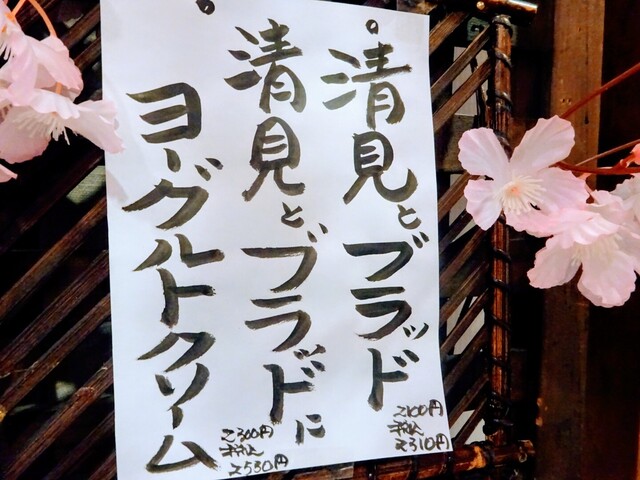 清見とブラッド
2100円
税込
2310円
清見とブラッドに
ヨーグルトクリーム
2300円
税込
2530円